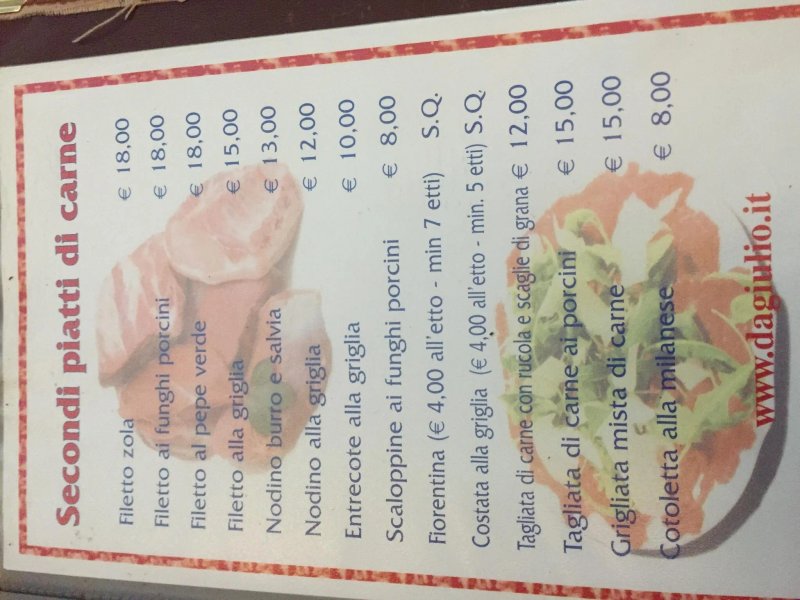 Secondi piatti di carne
Filetto zola € 18,00
Filetto ai funghi porcini € 18,00
Filetto al pepe verde € 18,00
Filetto alla griglia € 15,00
Nodino burro e salvia € 13,00
Nodino alla griglia € 12,00
Entrecote alla griglia € 10,00
Scaloppine ai funghi porcini € 8,00
Fiorentina (€ 4,00 all'etto - min 7 etti) S.Q.
Costata alla griglia (€ 4,00 all'etto - min. 5 etti) S.Q.
Tagliata di carne con rucola e scaglie di grana € 12,00
Tagliata di carne ai porcini € 15,00
Grigliata mista di carne € 15,00
Cotoletta alla milanese € 8,00
www.dagiulio.it